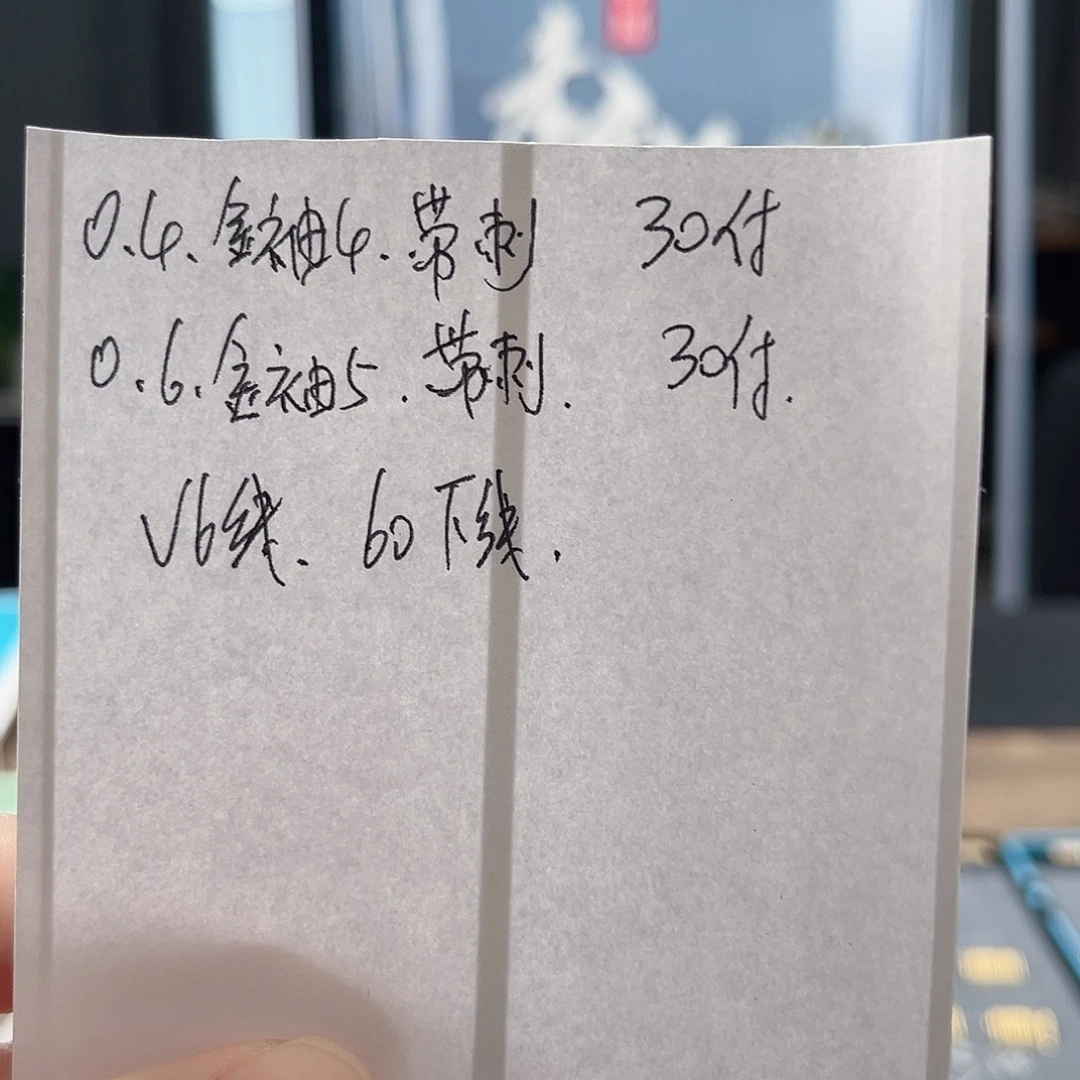 0.4、金袖4.带刺 30付
0.6.金袖5.带刺. 30付.
V6线、60下线.